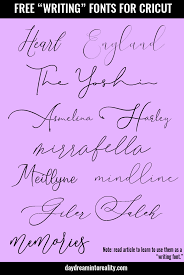 FREE "WRITING" FONTS FOR CRICUT
Heart England
The Yoshin
Asmelina Harley
mirrafella
Meitlyne mindline
Giler Saleh
memories
Note: read article to learn to use them as a
"writing font."
daydreamintoreality.com